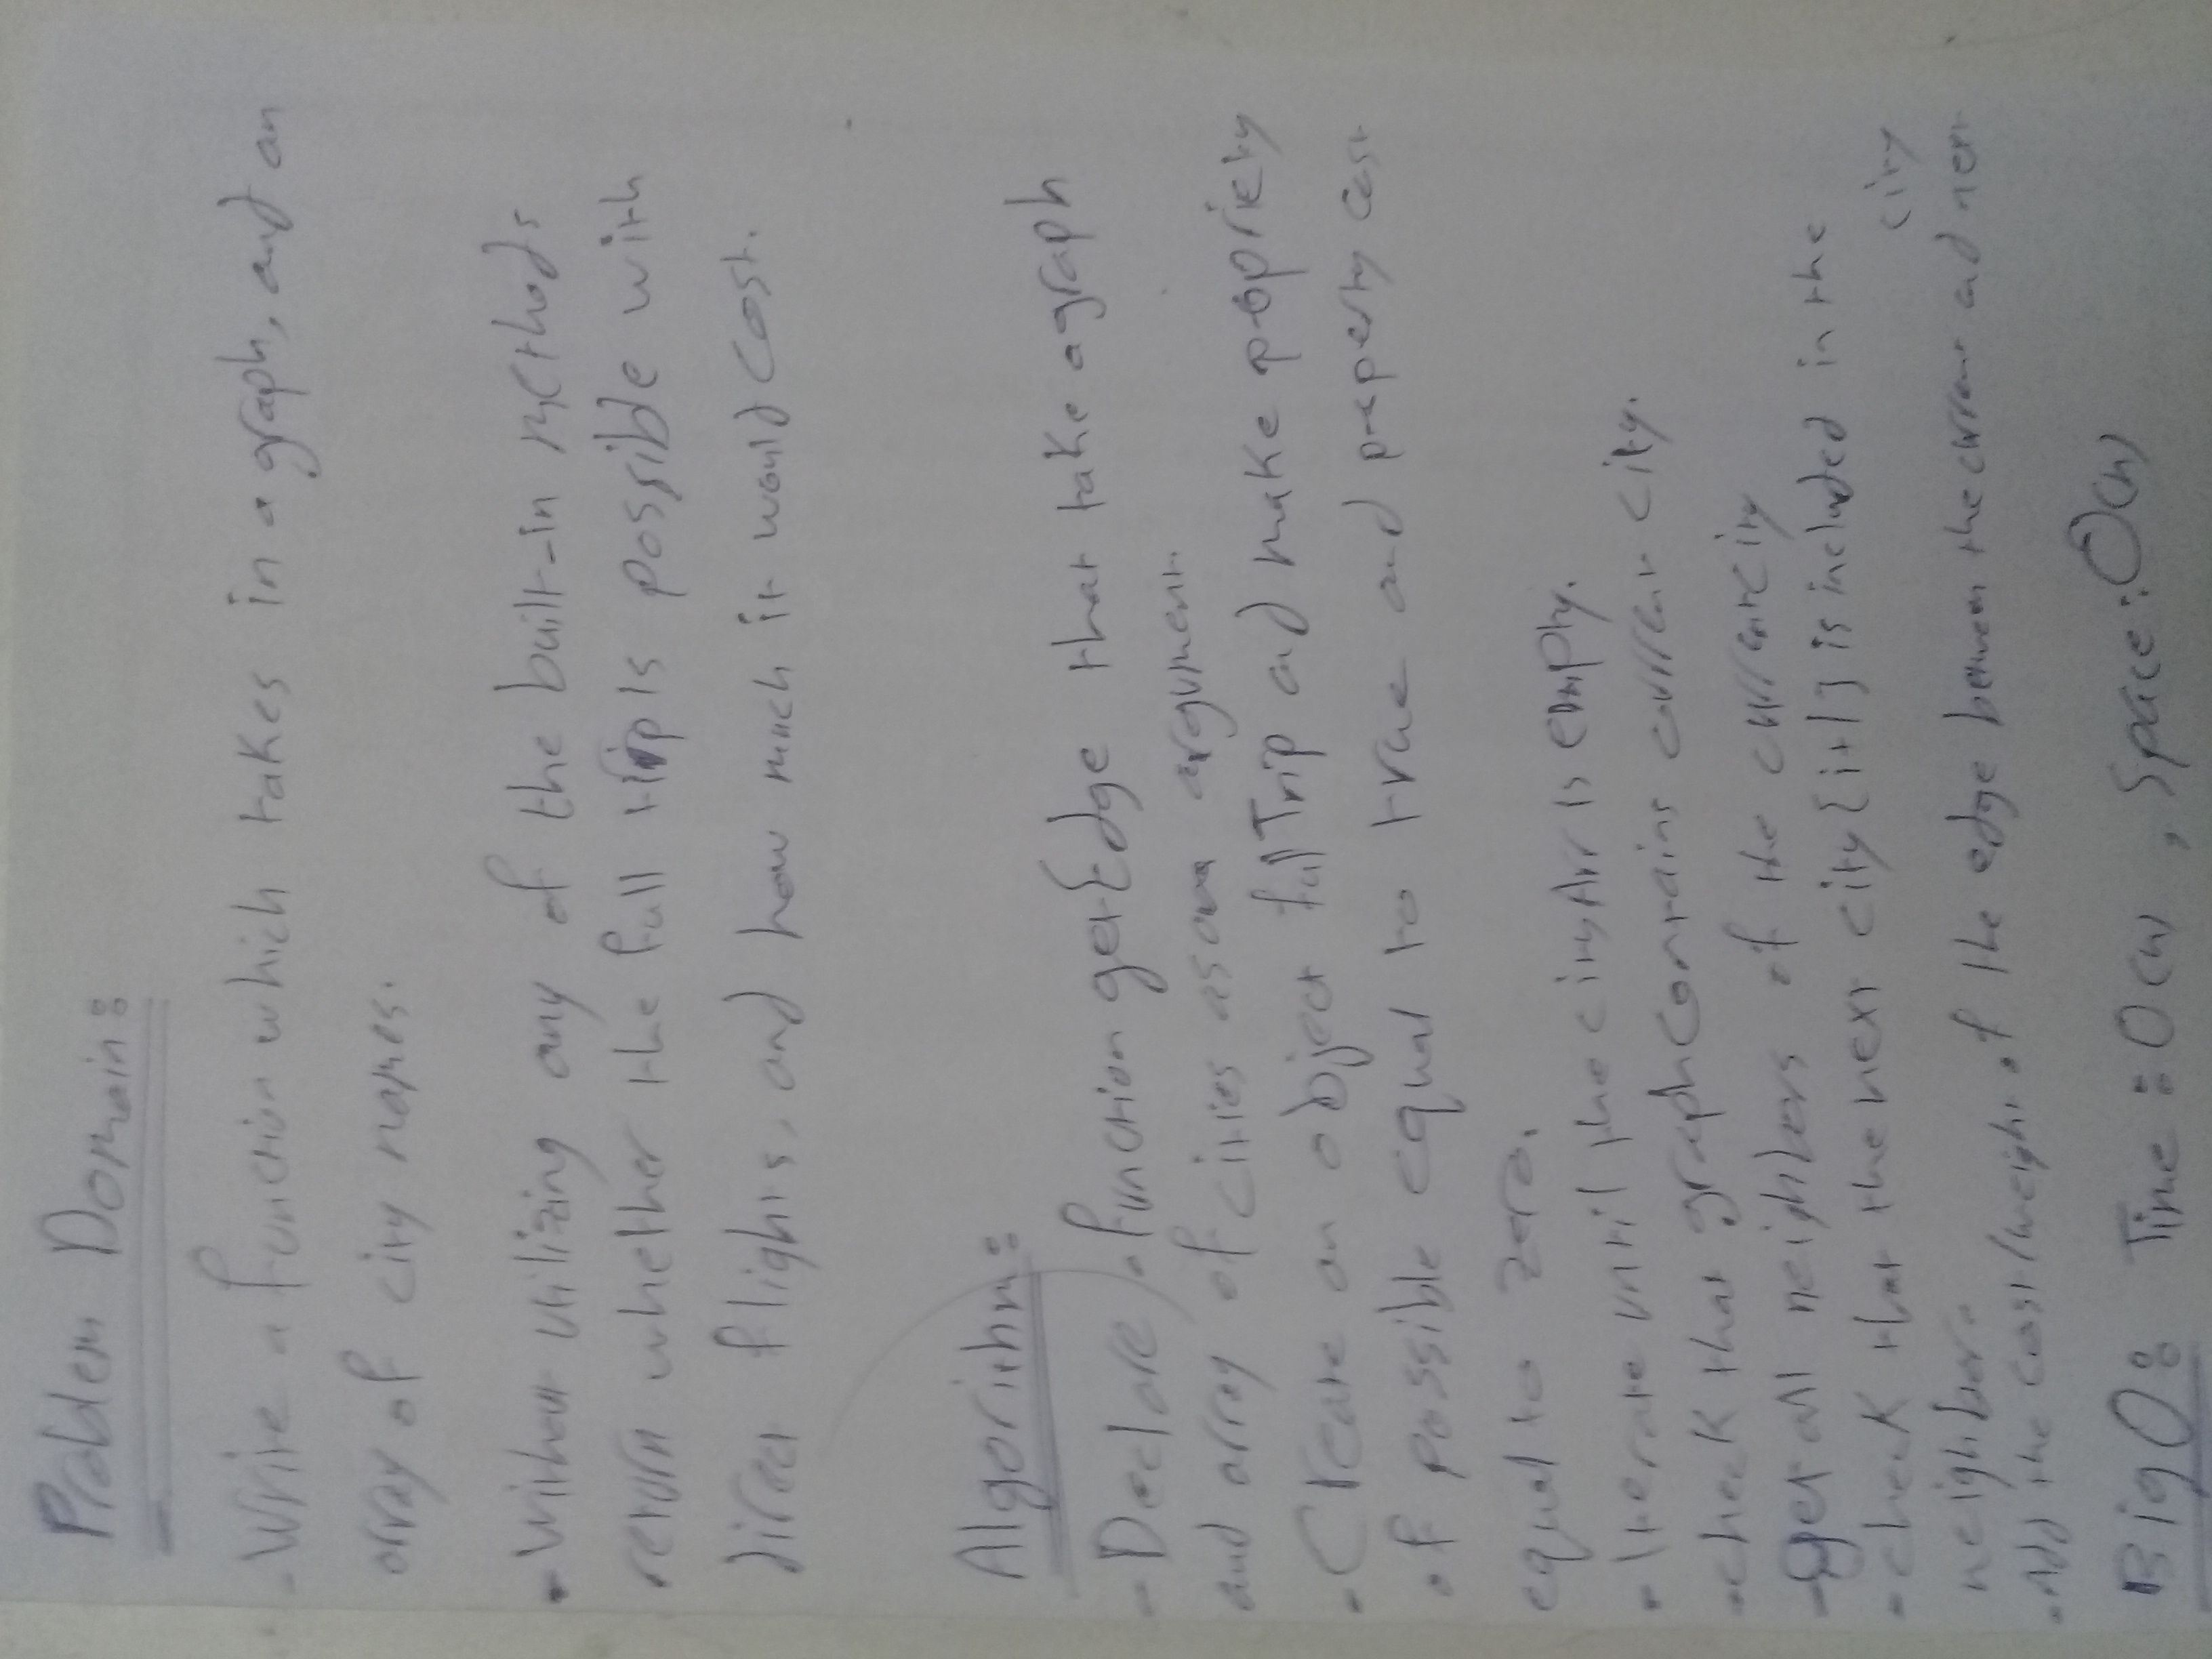 Problem Domain:
- Write a function which takes in a graph, and an
array of city names.
- Without utilizing any of the built-in methods
return whether the full trip is possible with
direct flights, and how much it would cost.
Algorithm:
- Declare a function getEdge that take a graph
and array of cities as argument.
- Create an object fullTrip and make propriety
of possible equal to true and property cost
equal to zero.
- Iterate until the cityArr is empty.
- check that graph contains current city.
- get all neighbers of the current city
- check that the next city [i+1] is included in the
neighber.
city
- Add the cost/weight of the edge between the current and next
Big O: Time: O(n), Space: O(n)